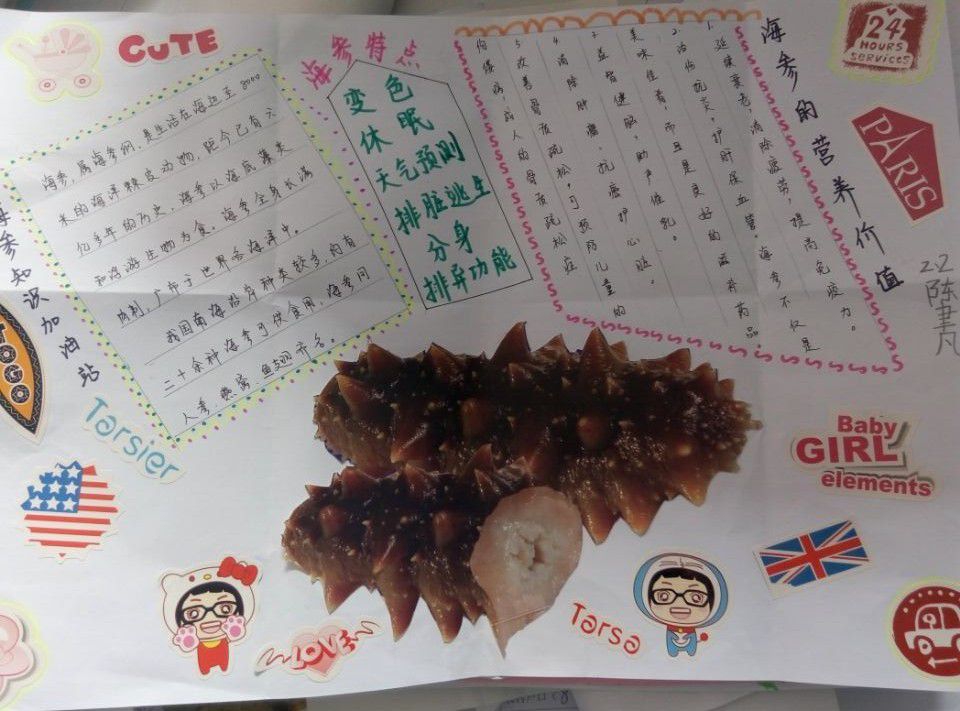 CUTE
海参知识加油站
海参,属海参纲,是生活在海边至8000
米的海洋棘皮动物,距今已有六
亿多年的历史,海参以海底藻类
和浮游生物为食。海参全身长满
肉刺,广布于世界各海洋中。
我国南海沿岸种类较多,约有
二十余种海参可供食用,海参同
人参、燕窝、鱼翅齐名。
海参特点
变色
休眠
天气预测
排脏逃生
分身
排异功能
海参的营养价值
1.延缓衰老,消除疲劳,提高免疫力。
2.治伤抗炎,护肝保血管。海参不仅是
美味佳肴,而且是良好的滋补药品。
3.益智健脑,助产催乳。
4.消除肿瘤,抗癌护心脏。
5.改善骨质疏松,可预防儿童的
佝偻病,成人的骨质疏松症
24
HOURS
services
PARIS
2.2
陈聿凡
TOGO
Tarsier
Baby
GIRL
elements
LOVE
Tarsa